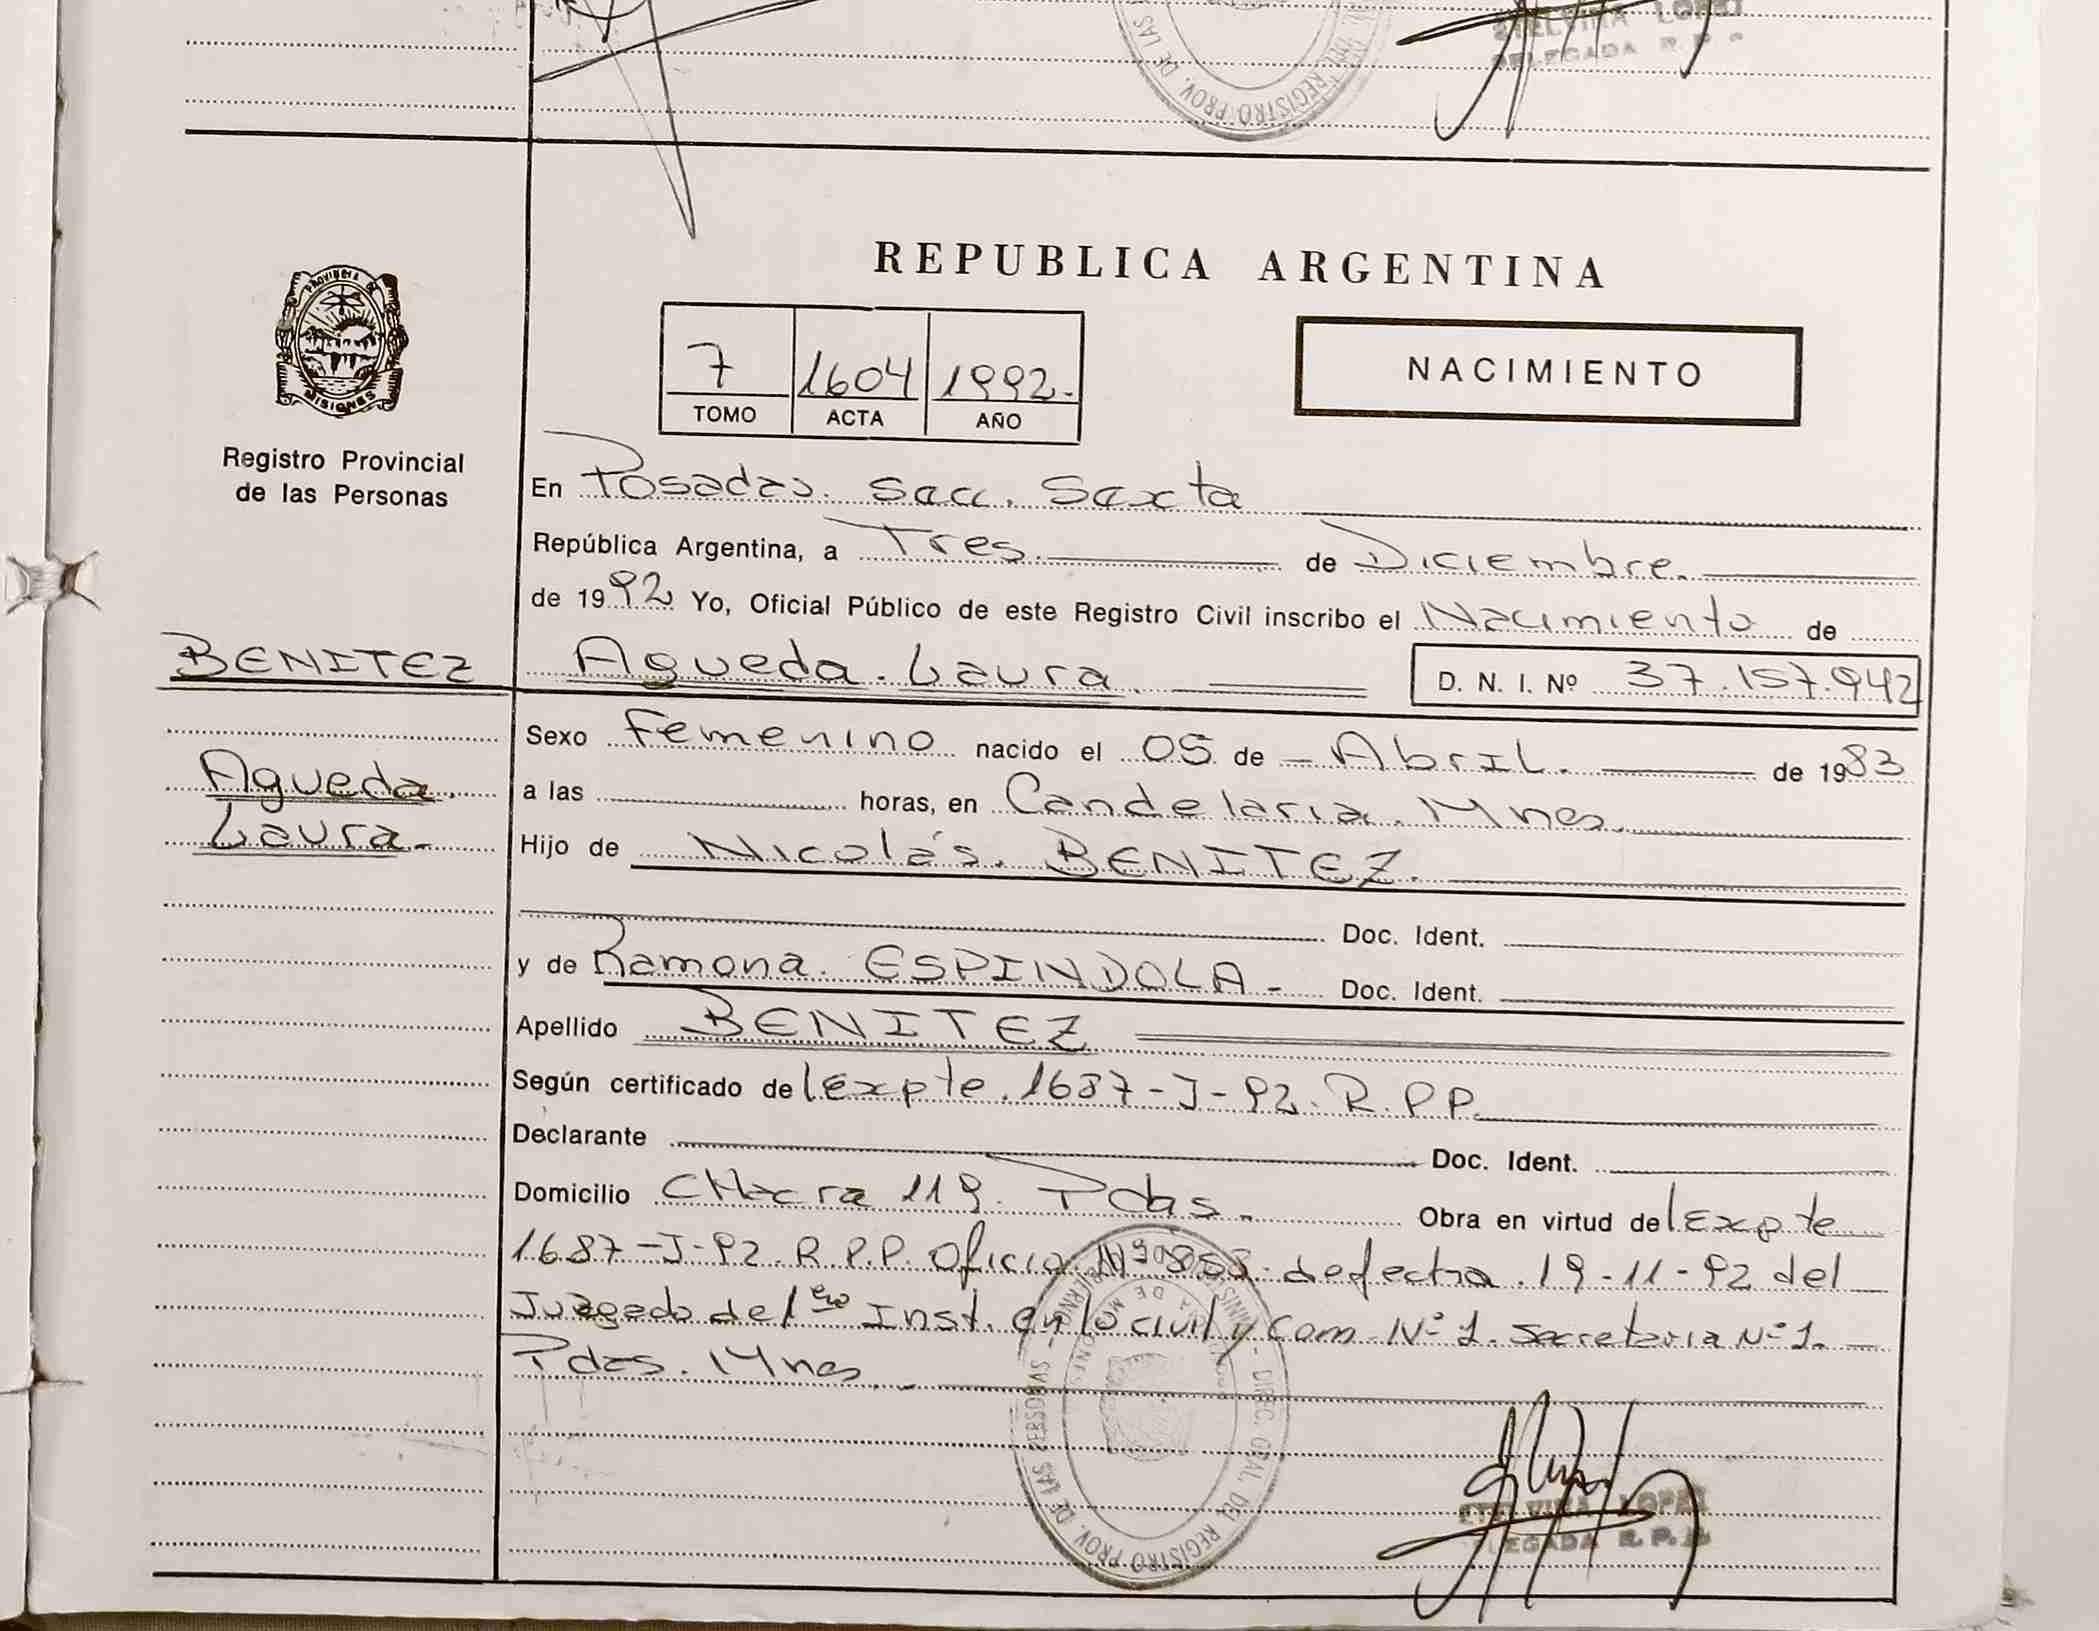 DELEGADA R. P.
DE LAS
DEL REGISTRO PROV.
REPUBLICA ARGENTINA
PROVINCIA DE
MISIONES
Registro Provincial
de las Personas
7 1604 1992.-
TOMO ACTA AÑO
NACIMIENTO
En Posadas. Secc. Sexta
República Argentina, a Tres. de Diciembre.
de 1992 Yo, Oficial Público de este Registro Civil inscribo el Nacimiento de
BENITEZ Agueda. Laura. D. N. I. Nº 37.157.942
Sexo Femenino nacido el 05 de - Abril. de 1983
Agueda.
a las horas, en Candelaria. Mnes.
Laura.- Hijo de Nicolás. BENITEZ.
Doc. Ident.
y de Ramona. ESPINDOLA - Doc. Ident.
Apellido BENITEZ
Según certificado del Expte. 1687-J-92. R.P.P.
Declarante Doc. Ident.
Domicilio CHacra 119. Pdas. Obra en virtud del Expte
1687-J-92. R.P.P. Oficio Nº de fecha. 19-11-92 del
Juzgado de 1ero Inst. en lo civil y com. Nº 1. Secretaria Nº 1.
Pdas. Mnes
DIREC. GRAL. DEL REGISTRO PROV. DE LAS PERSONAS
LOPEZ
DELEGADA R. P.